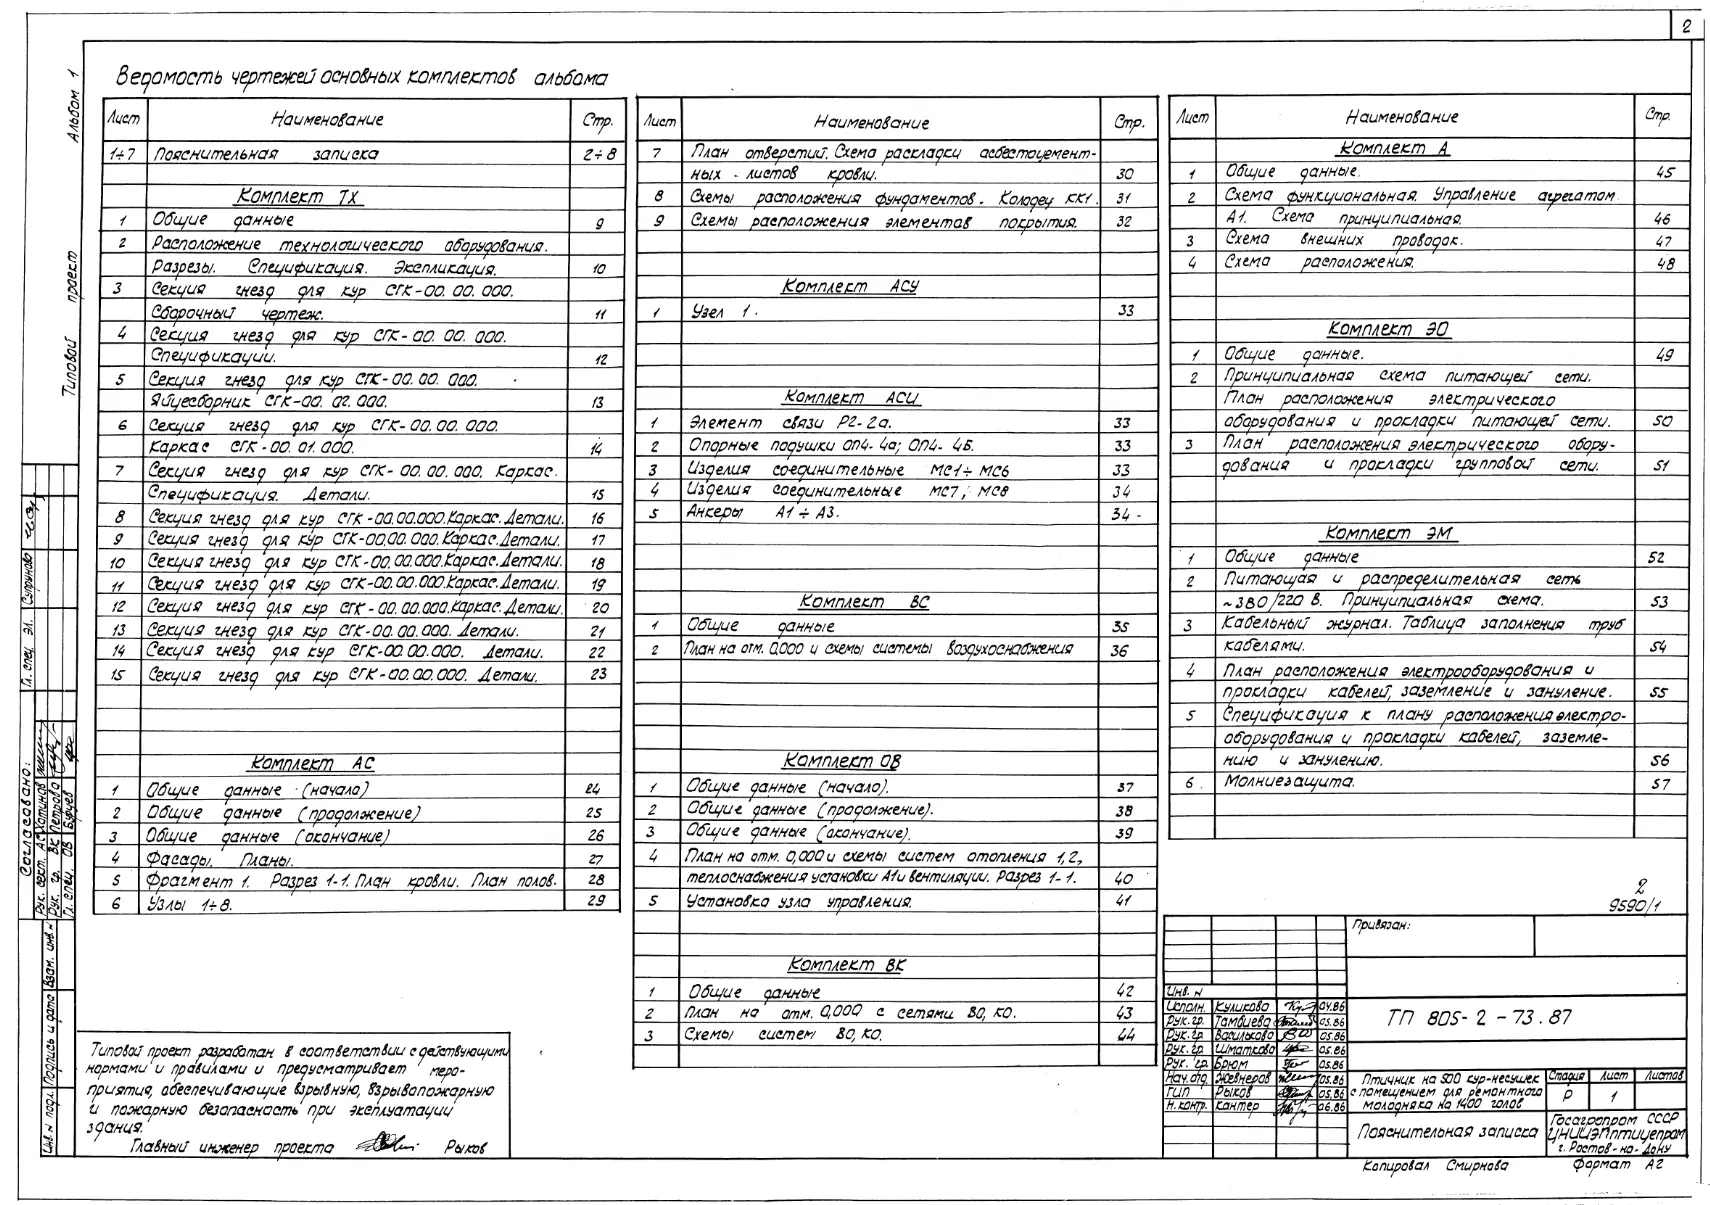 2
Альбом 1
Типовой проект
Ведомость чертежей основных комплектов альбома
Лист Наименование Стр.
1÷7 Пояснительная записка 2÷8
Комплект ТХ
1 Общие данные 9
2 Расположение технологического оборудования.
Разрезы. Спецификация. Экспликация. 10
3 Секция гнезд для кур СГК-00.00.000.
Сборочный чертеж. 11
4 Секция гнезд для кур СГК-00.00.000.
Спецификации. 12
5 Секция гнезд для кур СГК-00.00.000.
Яйцесборник СГК-00.02.000. 13
6 Секция гнезд для кур СГК-00.00.000.
Каркас СГК-00.01.000. 14
7 Секция гнезд для кур СГК-00.00.000. Каркас.
Спецификация. Детали. 15
8 Секция гнезд для кур СГК-00.00.000.Каркас.Детали. 16
9 Секция гнезд для кур СГК-00.00.000.Каркас.Детали. 17
10 Секция гнезд для кур СГК-00.00.000.Каркас.Детали. 18
11 Секция гнезд для кур СГК-00.00.000.Каркас.Детали. 19
12 Секция гнезд для кур СГК-00.00.000.Каркас.Детали. 20
13 Секция гнезд для кур СГК-00.00.000. Детали. 21
14 Секция гнезд для кур СГК-00.00.000. Детали. 22
15 Секция гнезд для кур СГК-00.00.000. Детали. 23
Комплект АС
1 Общие данные (начало) 24
2 Общие данные (продолжение) 25
3 Общие данные (окончание) 26
4 Фасады. Планы. 27
5 Фрагмент 1. Разрез 1-1. План кровли. План полов. 28
6 Узлы 1÷8. 29
Лист Наименование Стр.
7 План отверстий. Схема раскладки асбестоцемент-
ных листов кровли. 30
8 Схемы расположения фундаментов. Колодец КК1. 31
9 Схемы расположения элементов покрытия. 32
Комплект АСУ
1 Узел 1. 33
Комплект АСИ
1 Элемент связи Р2-2а. 33
2 Опорные подушки ОП4-4а; ОП4-4Б. 33
3 Изделия соединительные МС1÷МС6 33
4 Изделия соединительные МС7; МС8 34
5 Анкеры А1÷А3. 34
Комплект ВС
1 Общие данные 35
2 План на отм. 0,000 и схемы системы воздухоснабжения 36
Комплект ОВ
1 Общие данные (начало). 37
2 Общие данные (продолжение). 38
3 Общие данные (окончание). 39
4 План на отм. 0,000 и схемы систем отопления 1,2,
теплоснабжения установки А1 и вентиляции. Разрез 1-1. 40
5 Установка узла управления. 41
Комплект ВК
1 Общие данные 42
2 План на отм. 0,000 с сетями В0, К0. 43
3 Схемы систем В0, К0. 44
Лист Наименование Стр.
Комплект А
1 Общие данные. 45
2 Схема функциональная. Управление агрегатом
А1. Схема принципиальная. 46
3 Схема внешних проводок. 47
4 Схема расположения. 48
Комплект ЭО
1 Общие данные. 49
2 Принципиальная схема питающей сети.
План расположения электрического
оборудования и прокладки питающей сети. 50
3 План расположения электрического обору-
дования и прокладки групповой сети. 51
Комплект ЭМ
1 Общие данные 52
2 Питающая и распределительная сеть
~380/220 В. Принципиальная схема. 53
3 Кабельный журнал. Таблица заполнения труб
кабелями. 54
4 План расположения электрооборудования и
прокладки кабелей, заземление и зануление. 55
5 Спецификация к плану расположения электро-
оборудования и прокладки кабелей, заземле-
нию и занулению. 56
6. Молниезащита. 57
2
9590/1
Типовой проект разработан в соответствии с действующими
нормами и правилами и предусматривает меро-
приятия, обеспечивающие взрывную, взрывопожарную
и пожарную безопасность при эксплуатации
здания.
Главный инженер проекта Рыков
Согласовано:
Рук. сект. АС Хатинов
Рук. гр. ВК Петрова
Гл. спец. ОВ Бурцев
Гл. спец. ЭЛ. Супрунов
Инв. N подл. Подпись и дата Взам. инв. N
Привязан:
Инв. N
Исполн. Куликова 04.86
Рук. гр. Тамбиева 05.86
Рук. гр. Василькова 05.86
Рук. гр. Шматкова 05.86
Рук. гр. Брюм 05.86
Нач. отд. Жевнеров 05.86
ГИП Рыков 05.86
Н. контр. Кантер 06.86
ТП 805-2-73.87
Птичник на 500 кур-несушек
с помещением для ремонтного
молодняка на 1400 голов
Стадия Лист Листов
Р 1
Пояснительная записка
Госагропром СССР
ЦНИИЭПптицепром
г. Ростов-на-Дону
Копировал Смирнова Формат А2